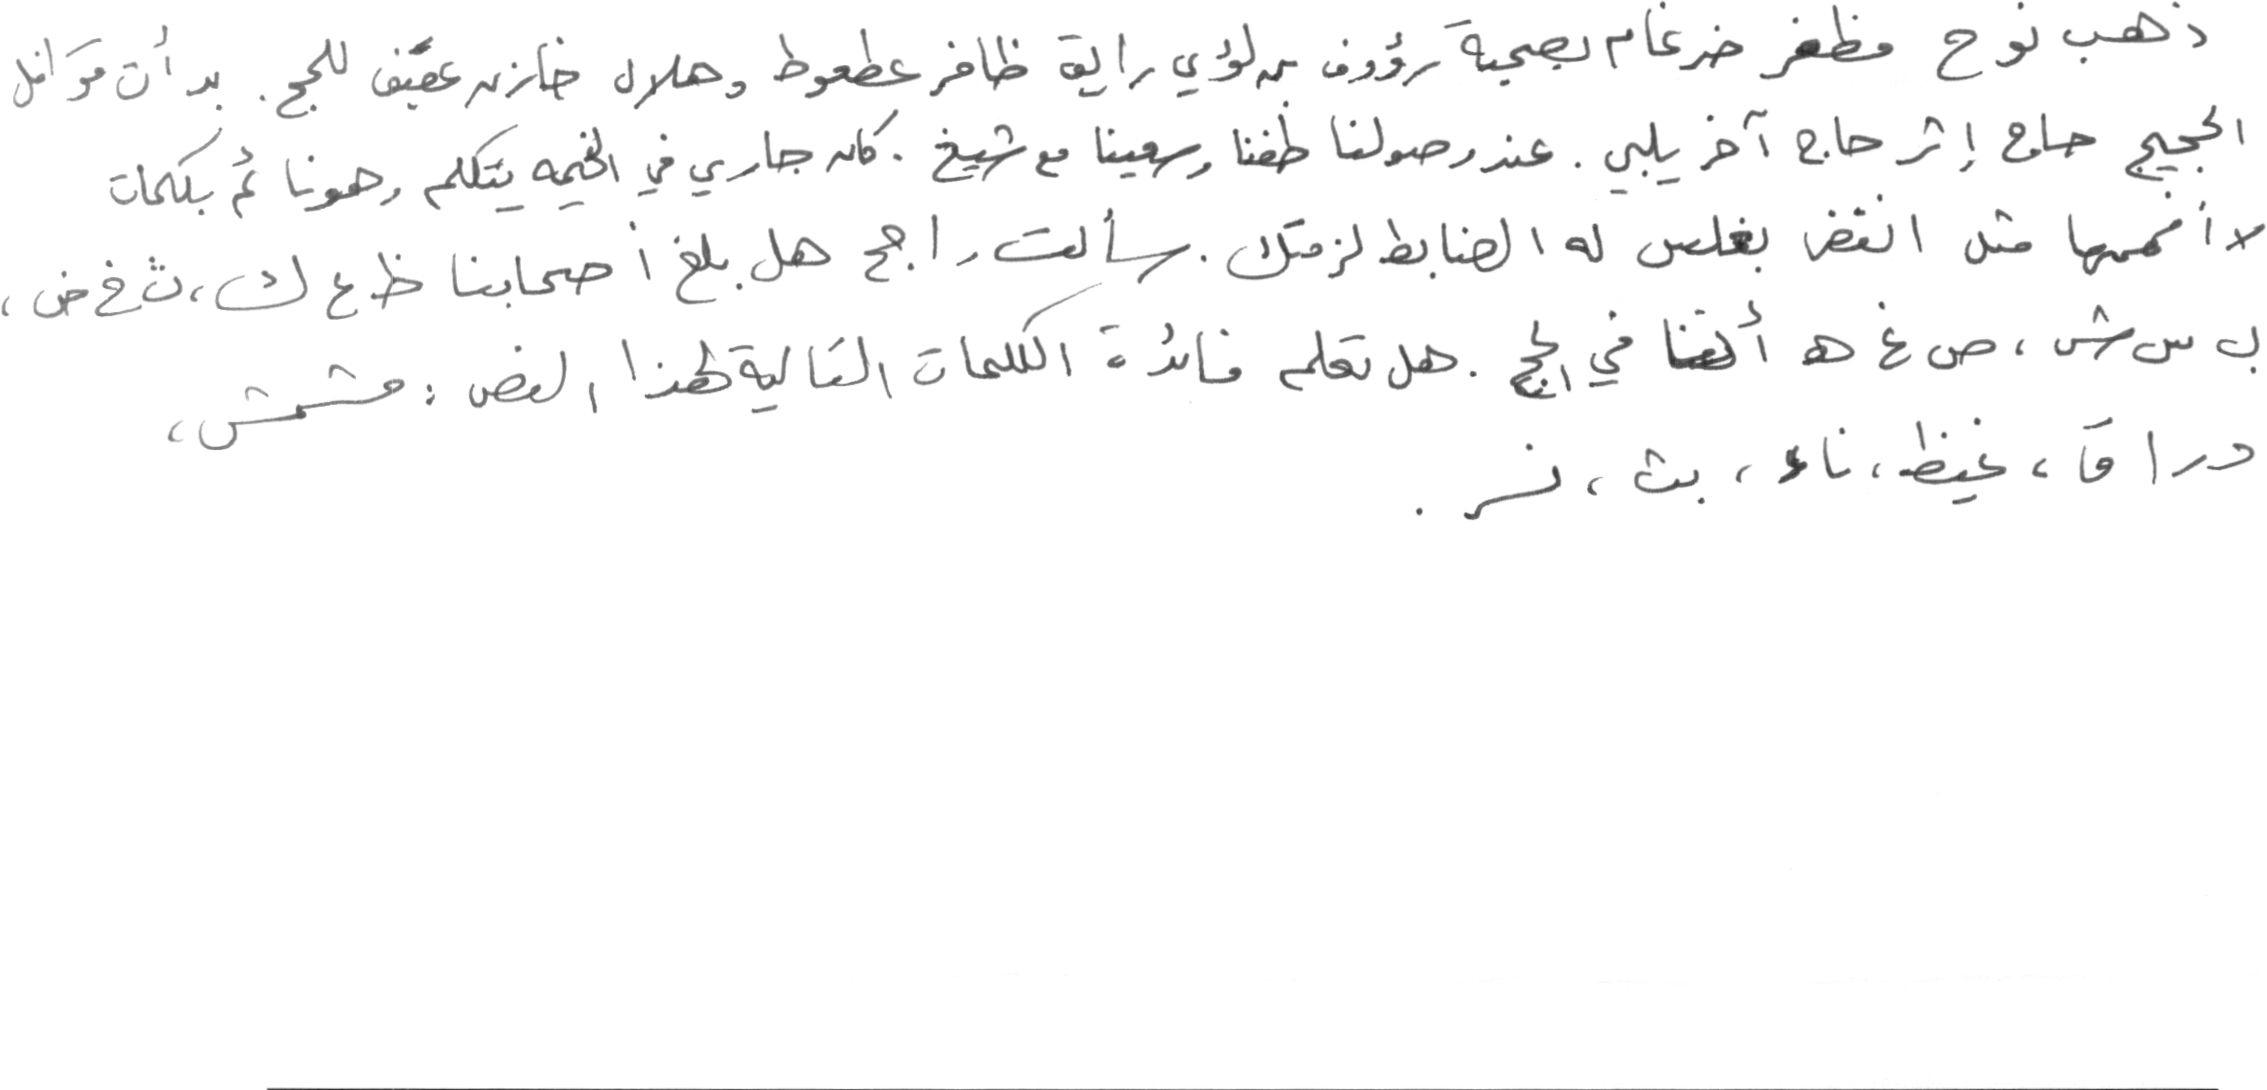 ذهب نوح مظفر ضرغام بصحبة رؤوف بن لؤي رايق ظافر عطعوط وهلال خازن عفيف للحج. بدأت قوافل
الحجيج حاج إثر حاج آخر يلبي. عند وصولنا طفنا وسعينا مع شيخ. كان جاري في الخيمه يتكلم وهو نائم بكلمات
لا أفهمها مثل انقض بغلس له الضابط لزمتك. سألت راجح هل بلغ أصحابنا ظ ع ك، ث خ ض،
ب س ش، ص غ ه أننا في الحج. هل تعلم فائدة الكلمات التالية لهذا النص: مشمش،
دراق، غيظ، ناء، بث، نسر.